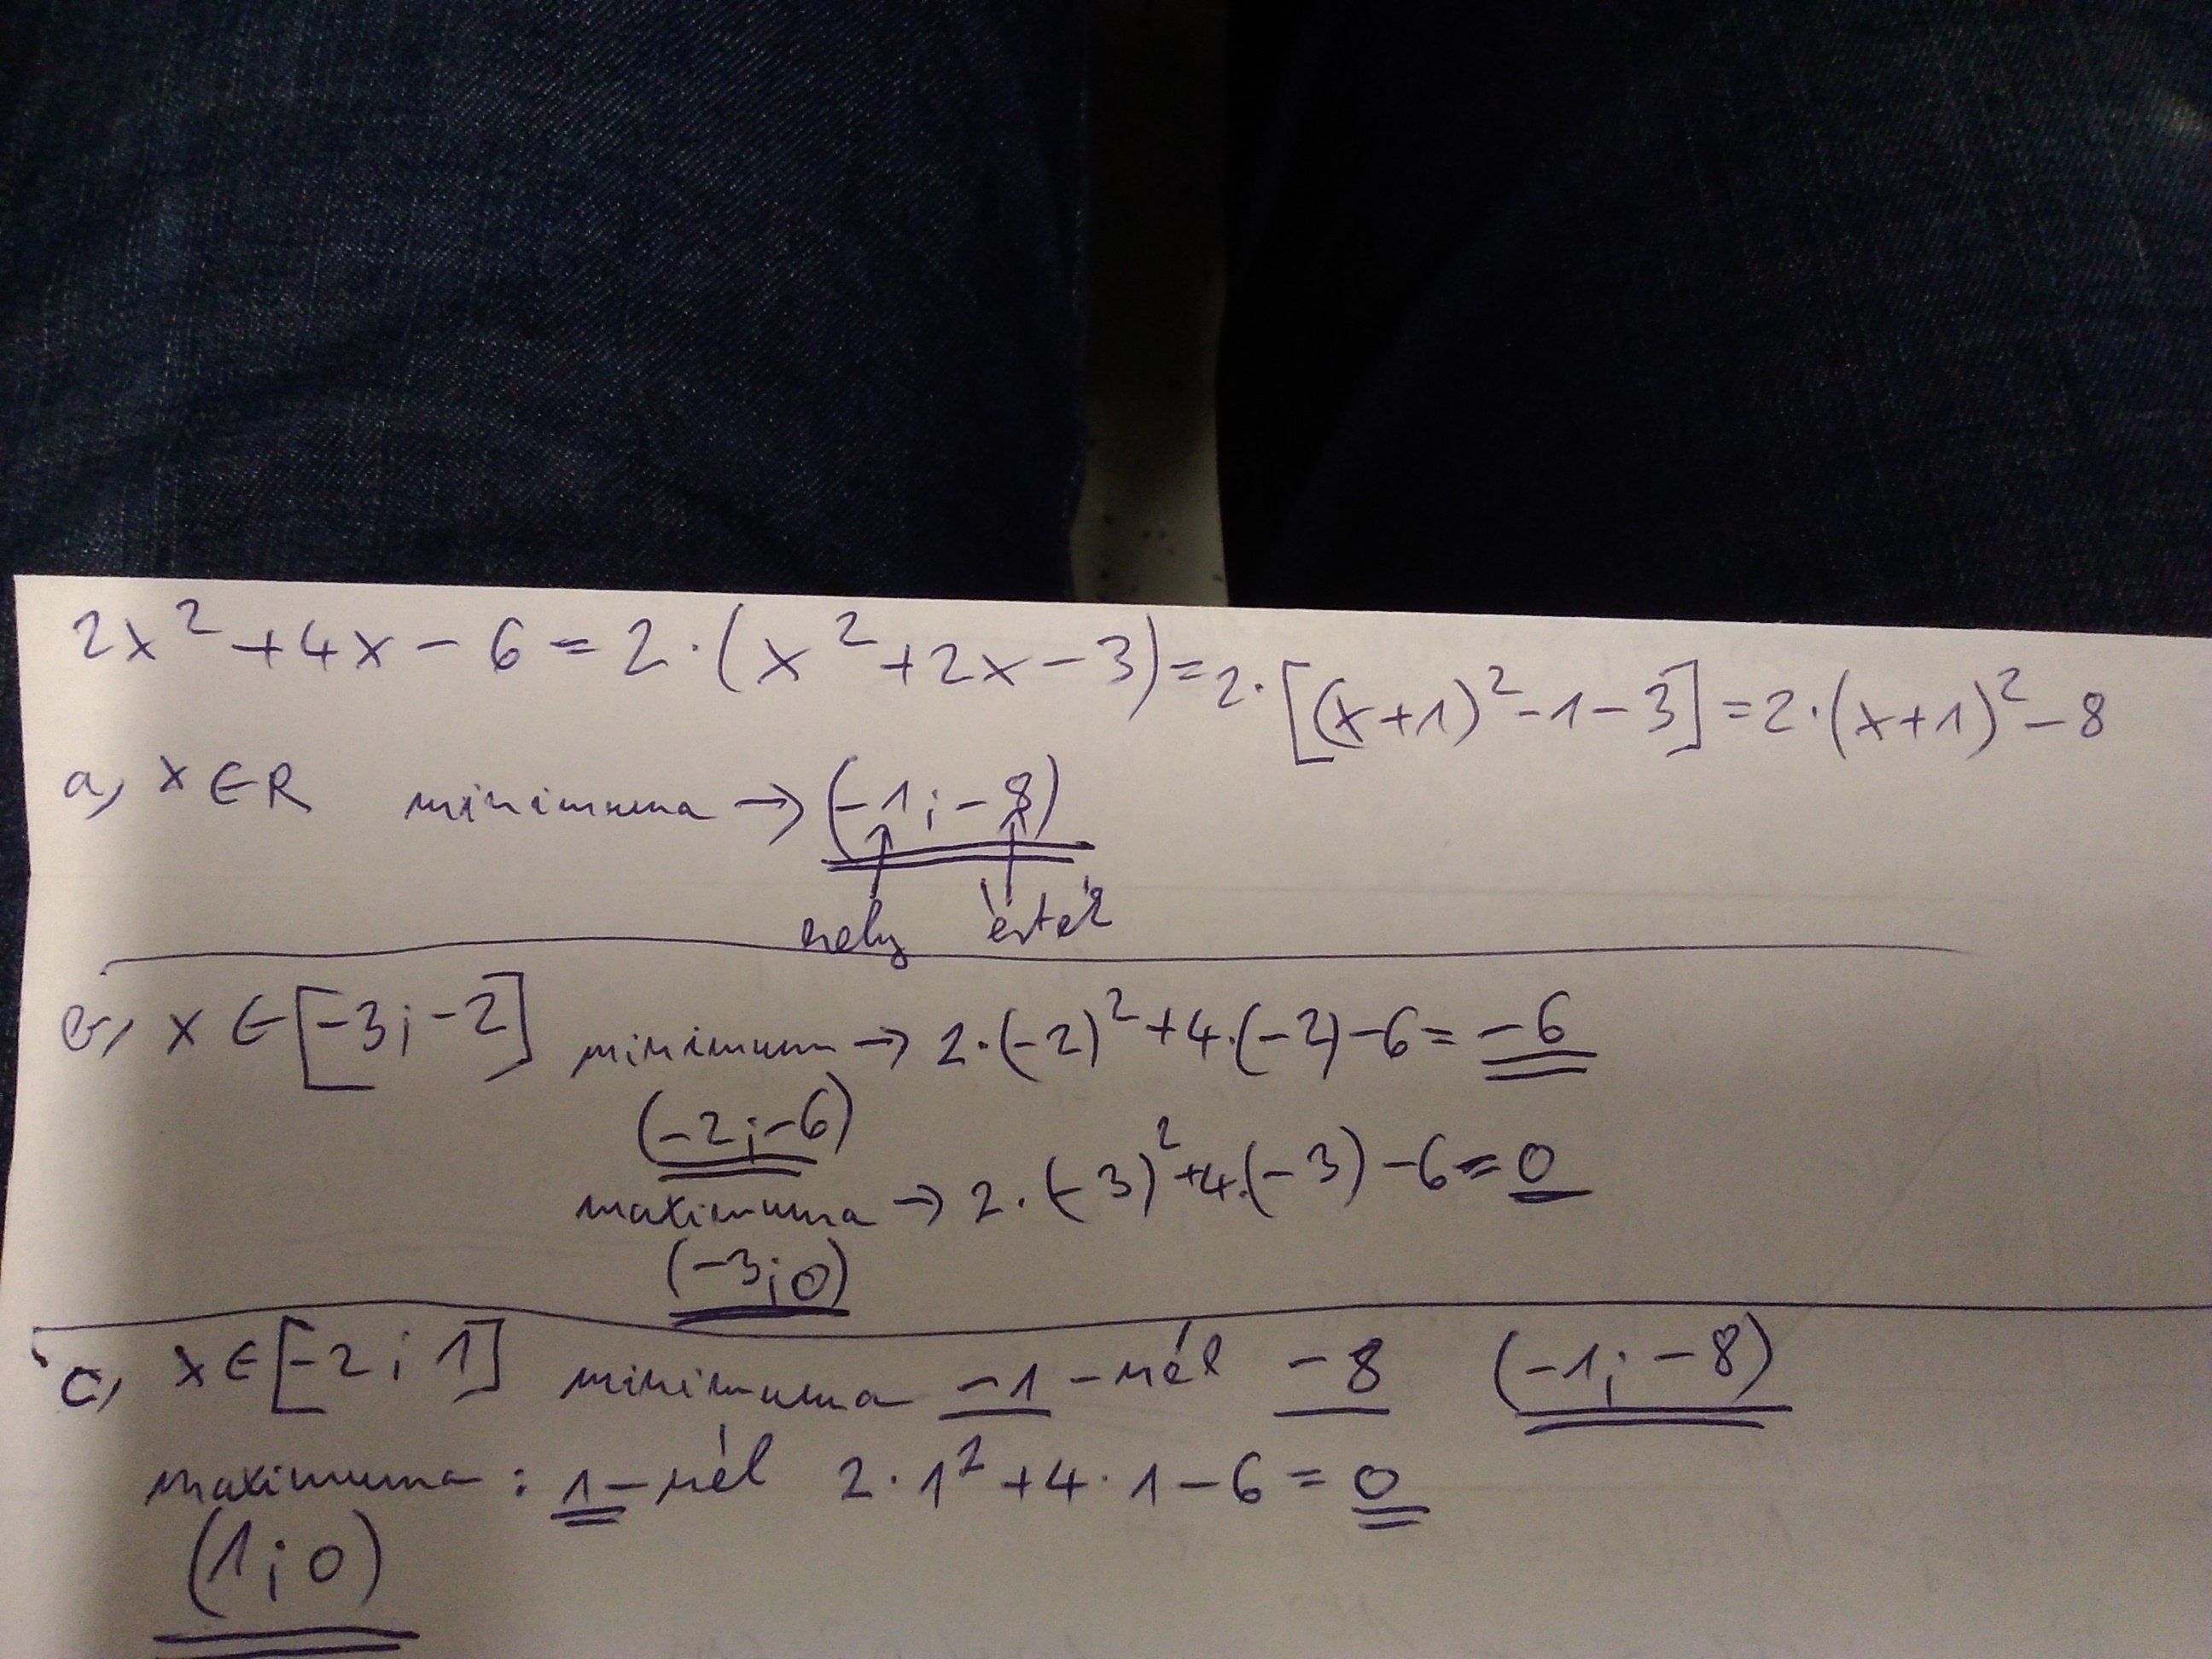 2x² + 4x - 6 = 2·(x² + 2x - 3) = 2·[(x+1)² - 1 - 3] = 2·(x+1)² - 8
a, x ∈ R minimuma → (-1; -8)
hely érték
b, x ∈ [-3; -2] minimum → 2·(-2)² + 4·(-2) - 6 = -6
(-2; -6)
maximuma → 2·(-3)² + 4·(-3) - 6 = 0
(-3; 0)
c, x ∈ [-2; 1] minimuma -1-nél -8 (-1; -8)
maximuma: 1-nél 2·1² + 4·1 - 6 = 0
(1; 0)